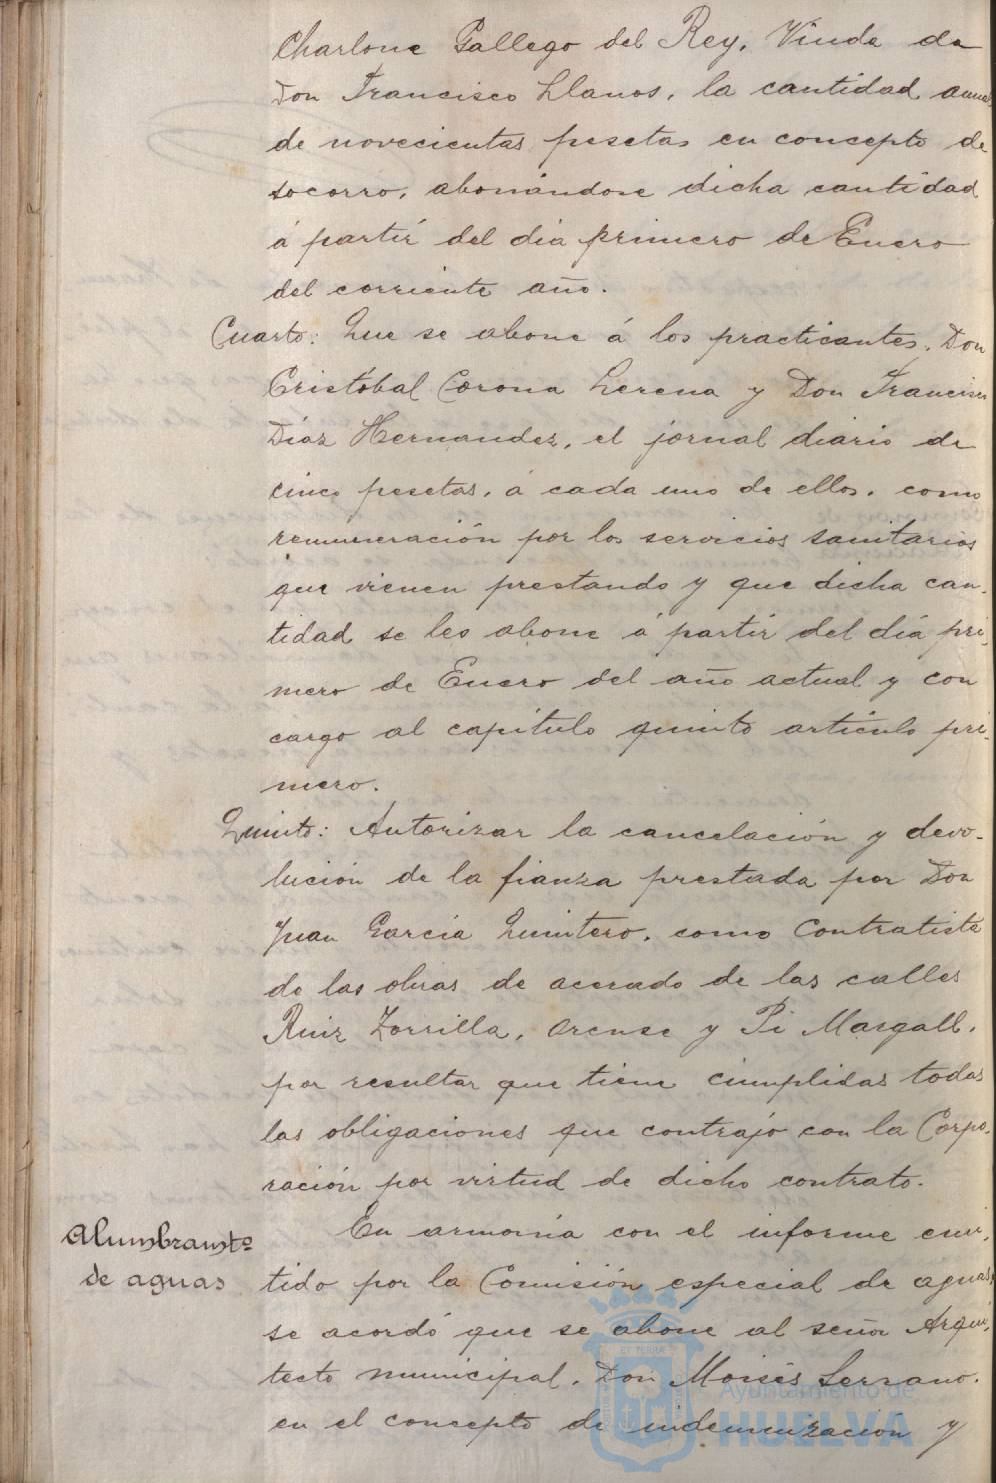 Charlone Gallego del Rey, Viuda de
Don Francisco Llanos, la cantidad anual
de novecientas pesetas en concepto de
socorro, abonándose dicha cantidad
á partir del día primero de Enero
del corriente año.
Cuarto: Que se abone á los practicantes, Don
Cristóbal Corona Lerena y Don Francisco
Díaz Hernandez, el jornal diario de
cinco pesetas, á cada uno de ellos, como
remuneración por los servicios sanitarios
que vienen prestando y que dicha can-
tidad se les abone á partir del día pri-
mero de Enero del año actual y con
cargo al capítulo quinto artículo pri-
mero.
Quinto: Autorizar la cancelación y devo-
lución de la fianza prestada por Don
Juan García Quintero, como Contratista
de las obras de acerado de las calles
Ruiz Zorrilla, Orense y Pi Margall,
por resultar que tiene cumplidas todas
las obligaciones que contrajó con la Corpo-
ración por virtud de dicho contrato.
Alumbramto
de aguas
En armonía con el informe emi-
tido por la Comisión especial de aguas,
se acordó que se abone al señor Arqui-
tecto municipal, Don Moisés Serrano,
en el concepto de indemnización y
Ayuntamiento de
HUELVA